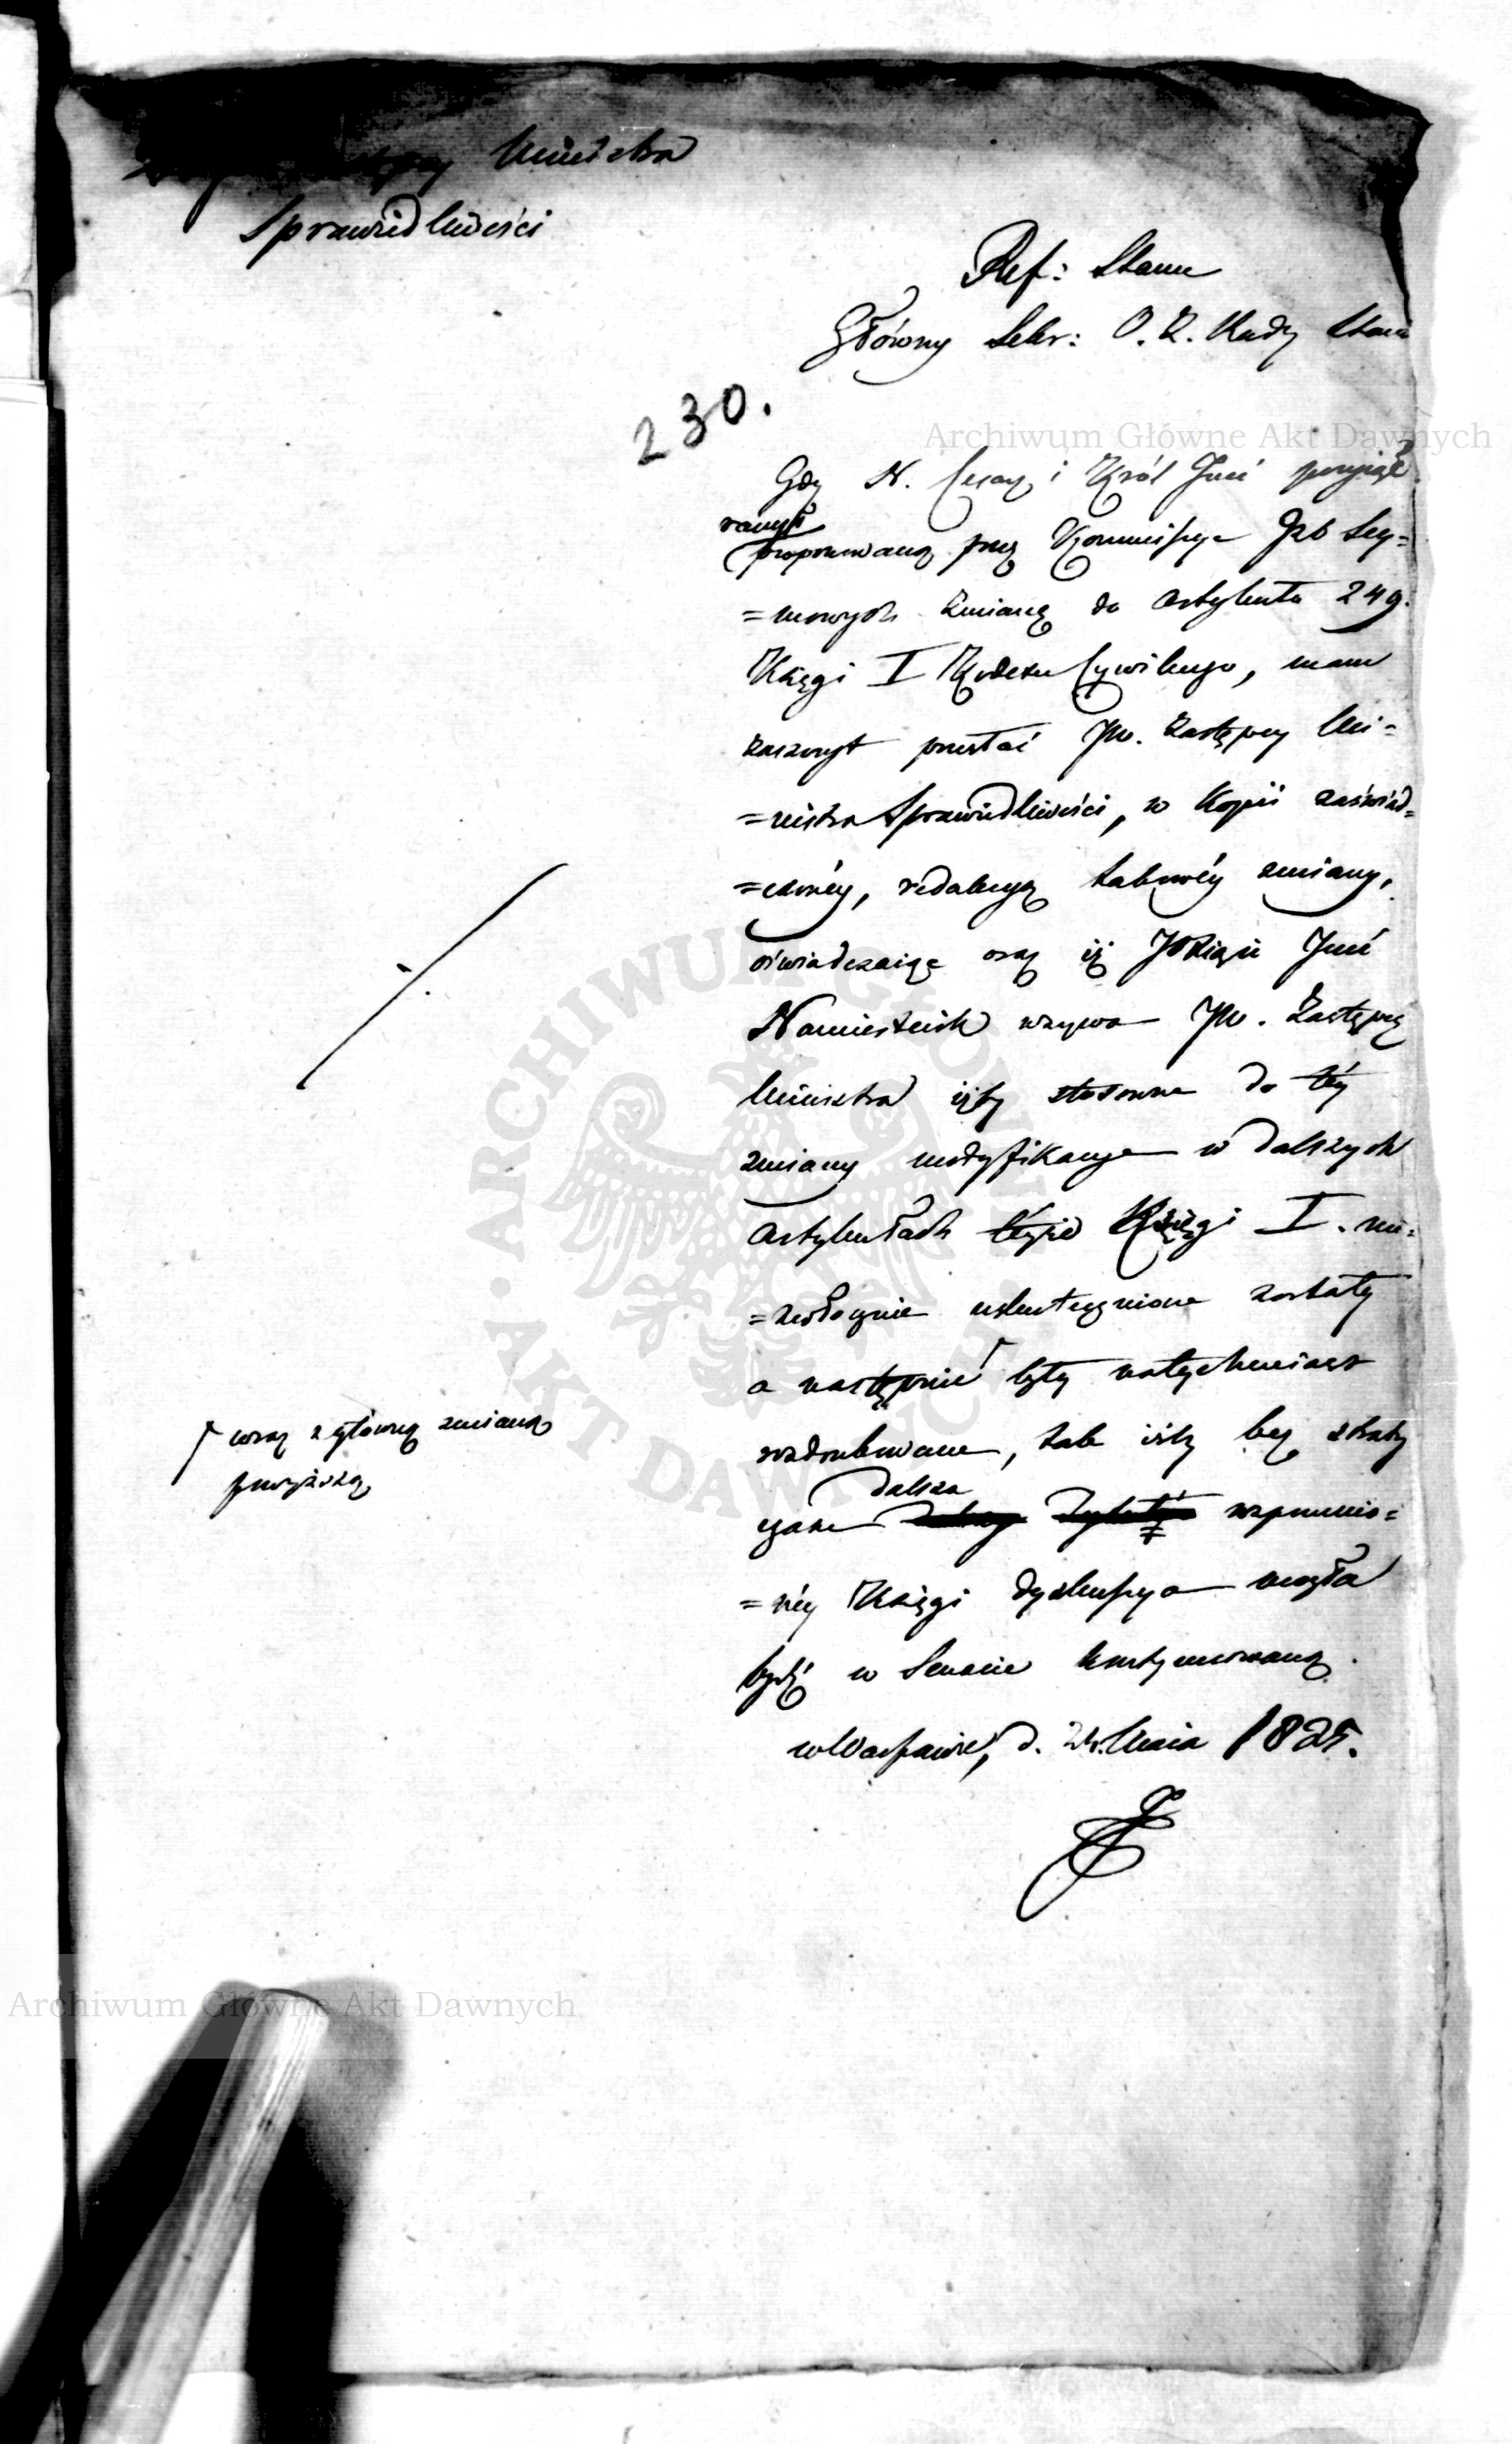 Zastępcy Ministra
Sprawiedliwości
Ref: Stanu
Główny Sekr: O. Z. Rady Stanu
230.
Gdy N. Cesarz i Król Jmć przyiąć
raczył
proponowaną przez Kommissye Izb Sey=
=mowych zmianę do Artykułu 249.
Księgi I Kodexu Cywilnego, mam
zaszczyt przesłać JW. Zastępcy Mi=
=nistra Sprawiedliwości, w Kopii zaświad=
=czonéy, redakcyą takowéy zmiany,
oświadczaiąc oraz iż JO Xiąże Jmć
Namiestnik wzywa JW. Zastępcę
Ministra iżby stosowne do téy
zmiany modyfikacye w dalszych
Artykułach téyże Księgi I. nie=
=zwłocznie uskutecznione zostały
a następnie ſ były natychmiast
wydrukowane, tak iżby bez straty
ſ wraz z główną zmianą
powyższą
dalsza
czasu wspomnio=
=néy Księgi dyskussya mogła
bydź w Senacie kontynuowaną.
w Warszawie, d. 24. Maia 1825.
Archiwum Główne Akt Dawnych
ARCHIWUM GŁÓWNE AKT DAWNYCH
Archiwum Główne Akt Dawnych